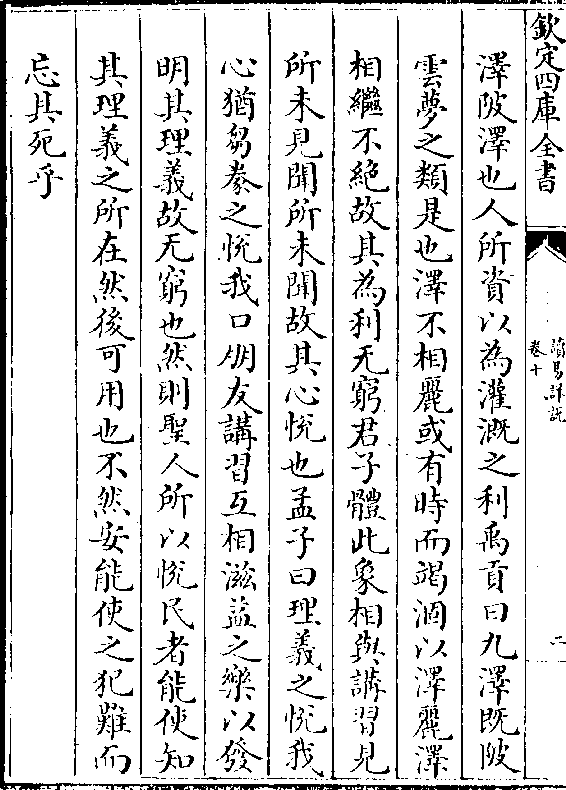 欽定四庫全書
讀易詳說
卷十
二
澤陂澤也人所資以為灌溉之利禹貢曰九澤既陂
雲夢之類是也澤不相麗或有時而竭涸以澤麗澤
相繼不絶故其為利无窮君子體此象相與講習見
所未見聞所未聞故其心悅也孟子曰理義之悅我
心猶芻豢之悅我口朋友講習互相滋益之樂以發
明其理義故无窮也然則聖人所以悅民者能使知
其理義之所在然後可用也不然安能使之犯難而
忘其死乎